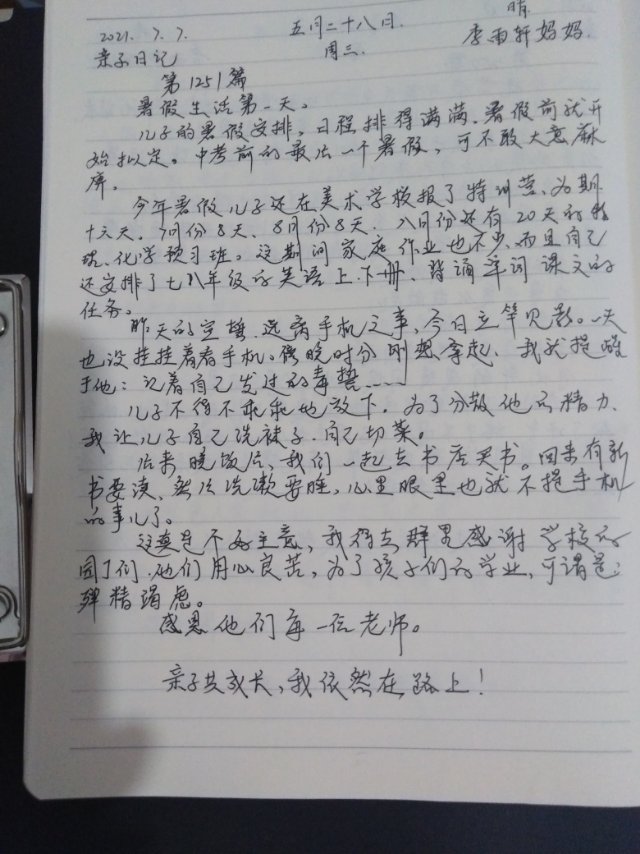 2021. 7. 7. 五月二十八日. 晴
亲子日记 周三. 李雨轩妈妈.
第1251篇
暑假生活第一天。
儿子的暑假安排,日程排得满满.暑假前就开
始拟定。中考前的最后一个暑假,可不敢大意麻
痹。
今年暑假儿子还在美术学校报了特训营、为期
十六天,7月份8天、8月份8天.八月份还有20天的物
理、化学预习班。这期间家庭作业也不少,而且自己
还安排了七八年级的英语上.下册、背诵单词课文的
任务。
昨天的宣誓.远离手机之事,今日立竿见影。一天
也没挂挂着看手机。傍晚时分刚想拿起、我就提醒
于他:记着自己发过的毒誓……
儿子不得不乖乖地放下.为了分散他的精力.
我让儿子自己洗袜子.自己切菜。
后来晚饭后,我们一起去书店买书。回来有新
书要读、然后洗漱要睡,心里眼里也就不提手机
的事儿了。
这真是不好主意,我得去群里感谢学校的
园丁们.他们用心良苦,为了孩子们的学业,可谓是:
殚精竭虑。
感恩他们每一位老师。
亲子共成长,我依然在路上!